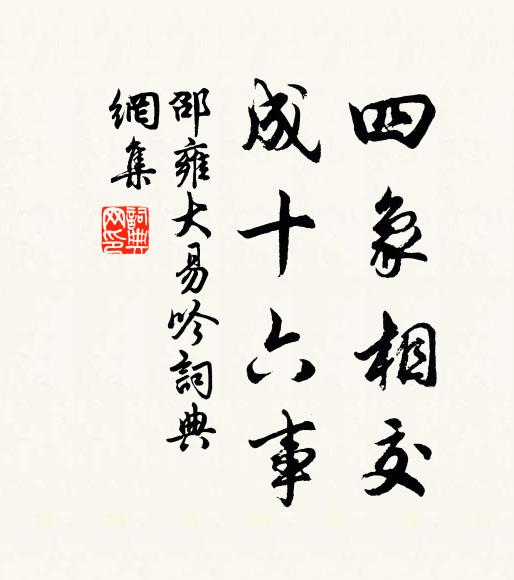 四象相交
成十六事
邵雍大易吟詞典
網集
詞典
网印